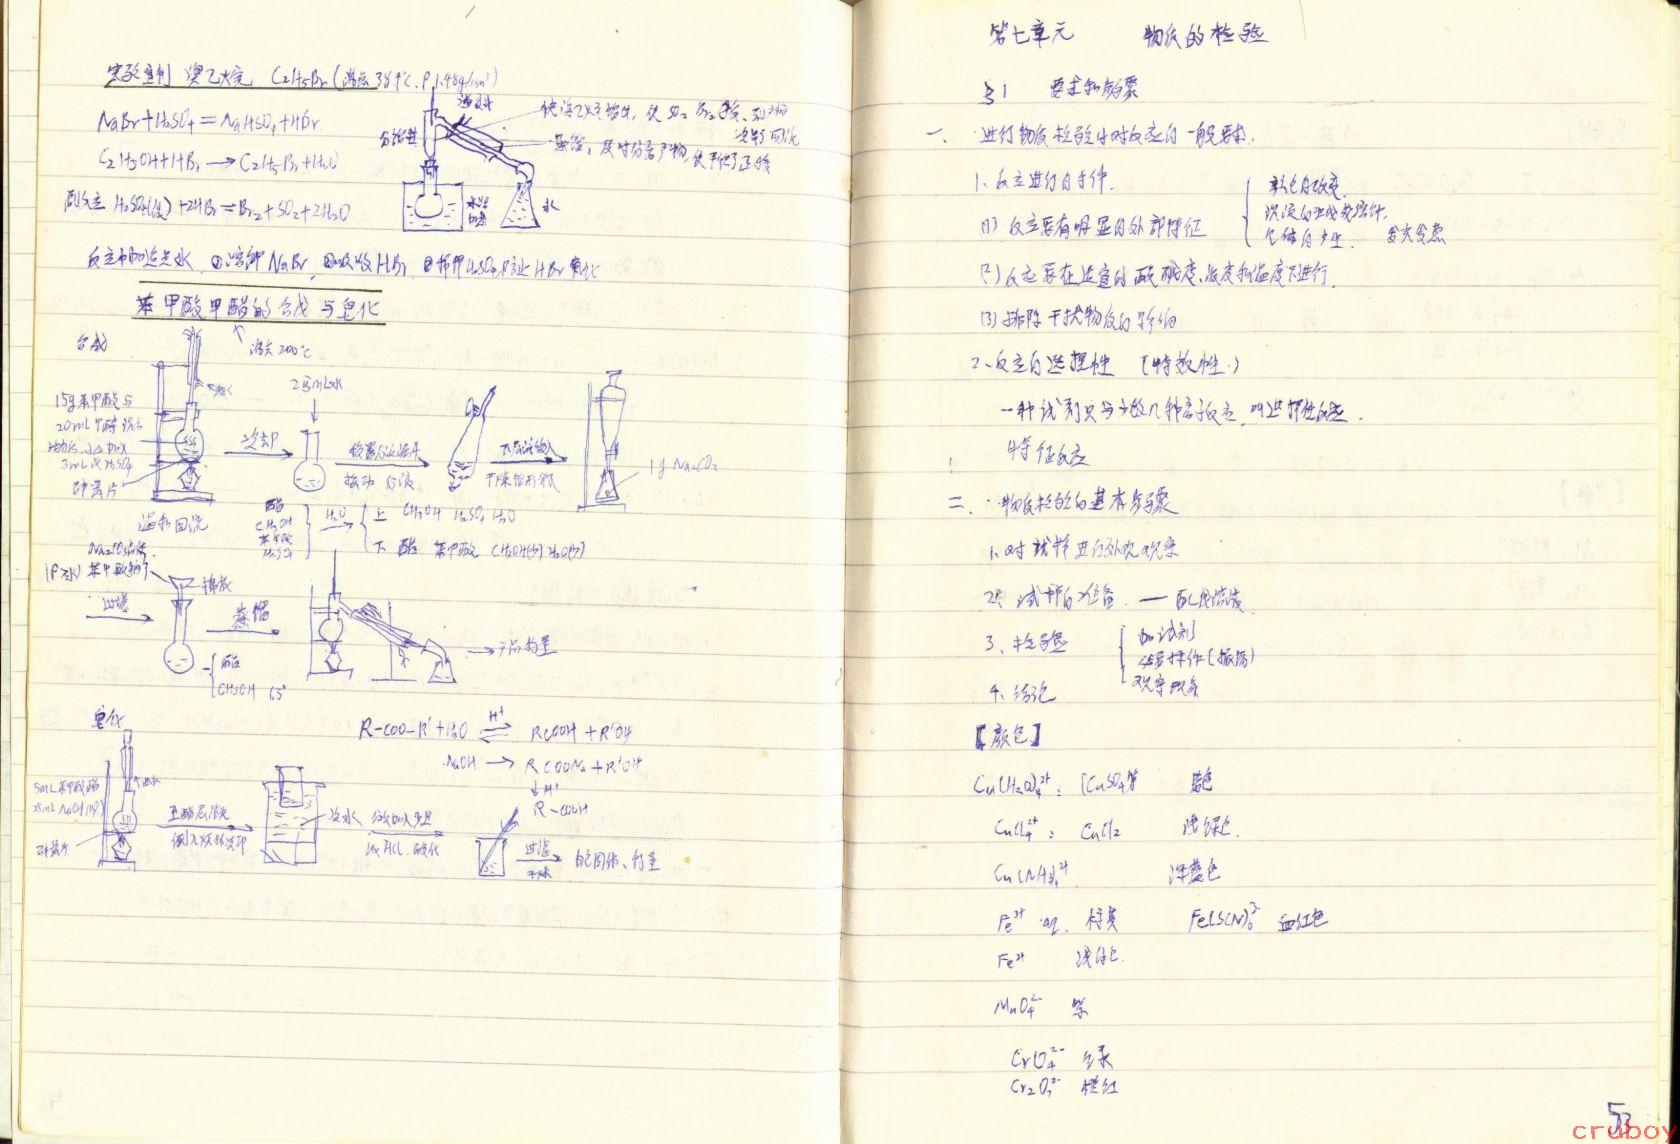 实验室制 溴乙烷 C2H5Br (沸点38.4℃, ρ 1.48g/cm³)
NaBr+H2SO4=NaHSO4+HBr
C2H5OH+HBr→C2H5Br+H2O
副反应 H2SO4(浓)+2HBr=Br2+SO2+2H2O
温水
分馏柱
水浴
水
反应中加适量水 ①溶解NaBr ②吸收HBr ③稀释H2SO4防止HBr氧化
苯甲酸甲酯的合成与皂化
沸点200℃
合成
15g苯甲酸与
20mL甲醇
3mL浓H2SO4
碎瓷片
温和回流
冷却
25mL水
振动 分液
干燥锥形瓶
1g Na2CO3
酯
CH3OH
苯甲酸
H2SO4
H2O
上 CH3OH H2SO4 H2O
下 酯 苯甲酸 CH3OH(少) H2O(少)
过滤
棉花
酯
CH3OH 65°
蒸馏
产品称量
皂化
R-COO-R'+H2O H+ ⇌ RCOOH+R'OH
NaOH → RCOONa+R'OH
↓H+
R-COOH
5mL苯甲酸酯
25mL NaOH
碎瓷片
至酯层消失
冷水
分次加入少量
浓HCl 酸化
过滤
干燥
白色固体、称量
第七章元 物质的检验
§1 要求和步骤
一、进行物质检验时对反应的一般要求.
1、反应进行的条件.
(1) 反应要有明显的外部特征
颜色的改变
沉淀的生成或溶解
气体的产生 发光发热
(2) 反应要在适宜的酸碱度、浓度和温度下进行.
(3) 排除干扰物质的影响
2、反应的选择性 (特效性.)
一种试剂只与少数几种离子反应, 叫选择性反应.
特征反应
二、物质检验的基本步骤
1、对试样进行外观观察
2、试样的准备. — 配成溶液
3、检验
加试剂
操作(振荡)
观察现象
4、结论
【颜色】
Cu(H2O)4²⁺: (CuSO4等 蓝色
CuCl4²⁺: CuCl2 浅绿色.
Cu(NH3)4²⁺. 深蓝色
Fe³⁺ aq. 棕黄 Fe(SCN)6³⁻ 血红色
Fe²⁺ 浅绿色.
MnO4²⁻ 紫
CrO4²⁻
Cr2O7²⁻ 橙红
53
cruboy